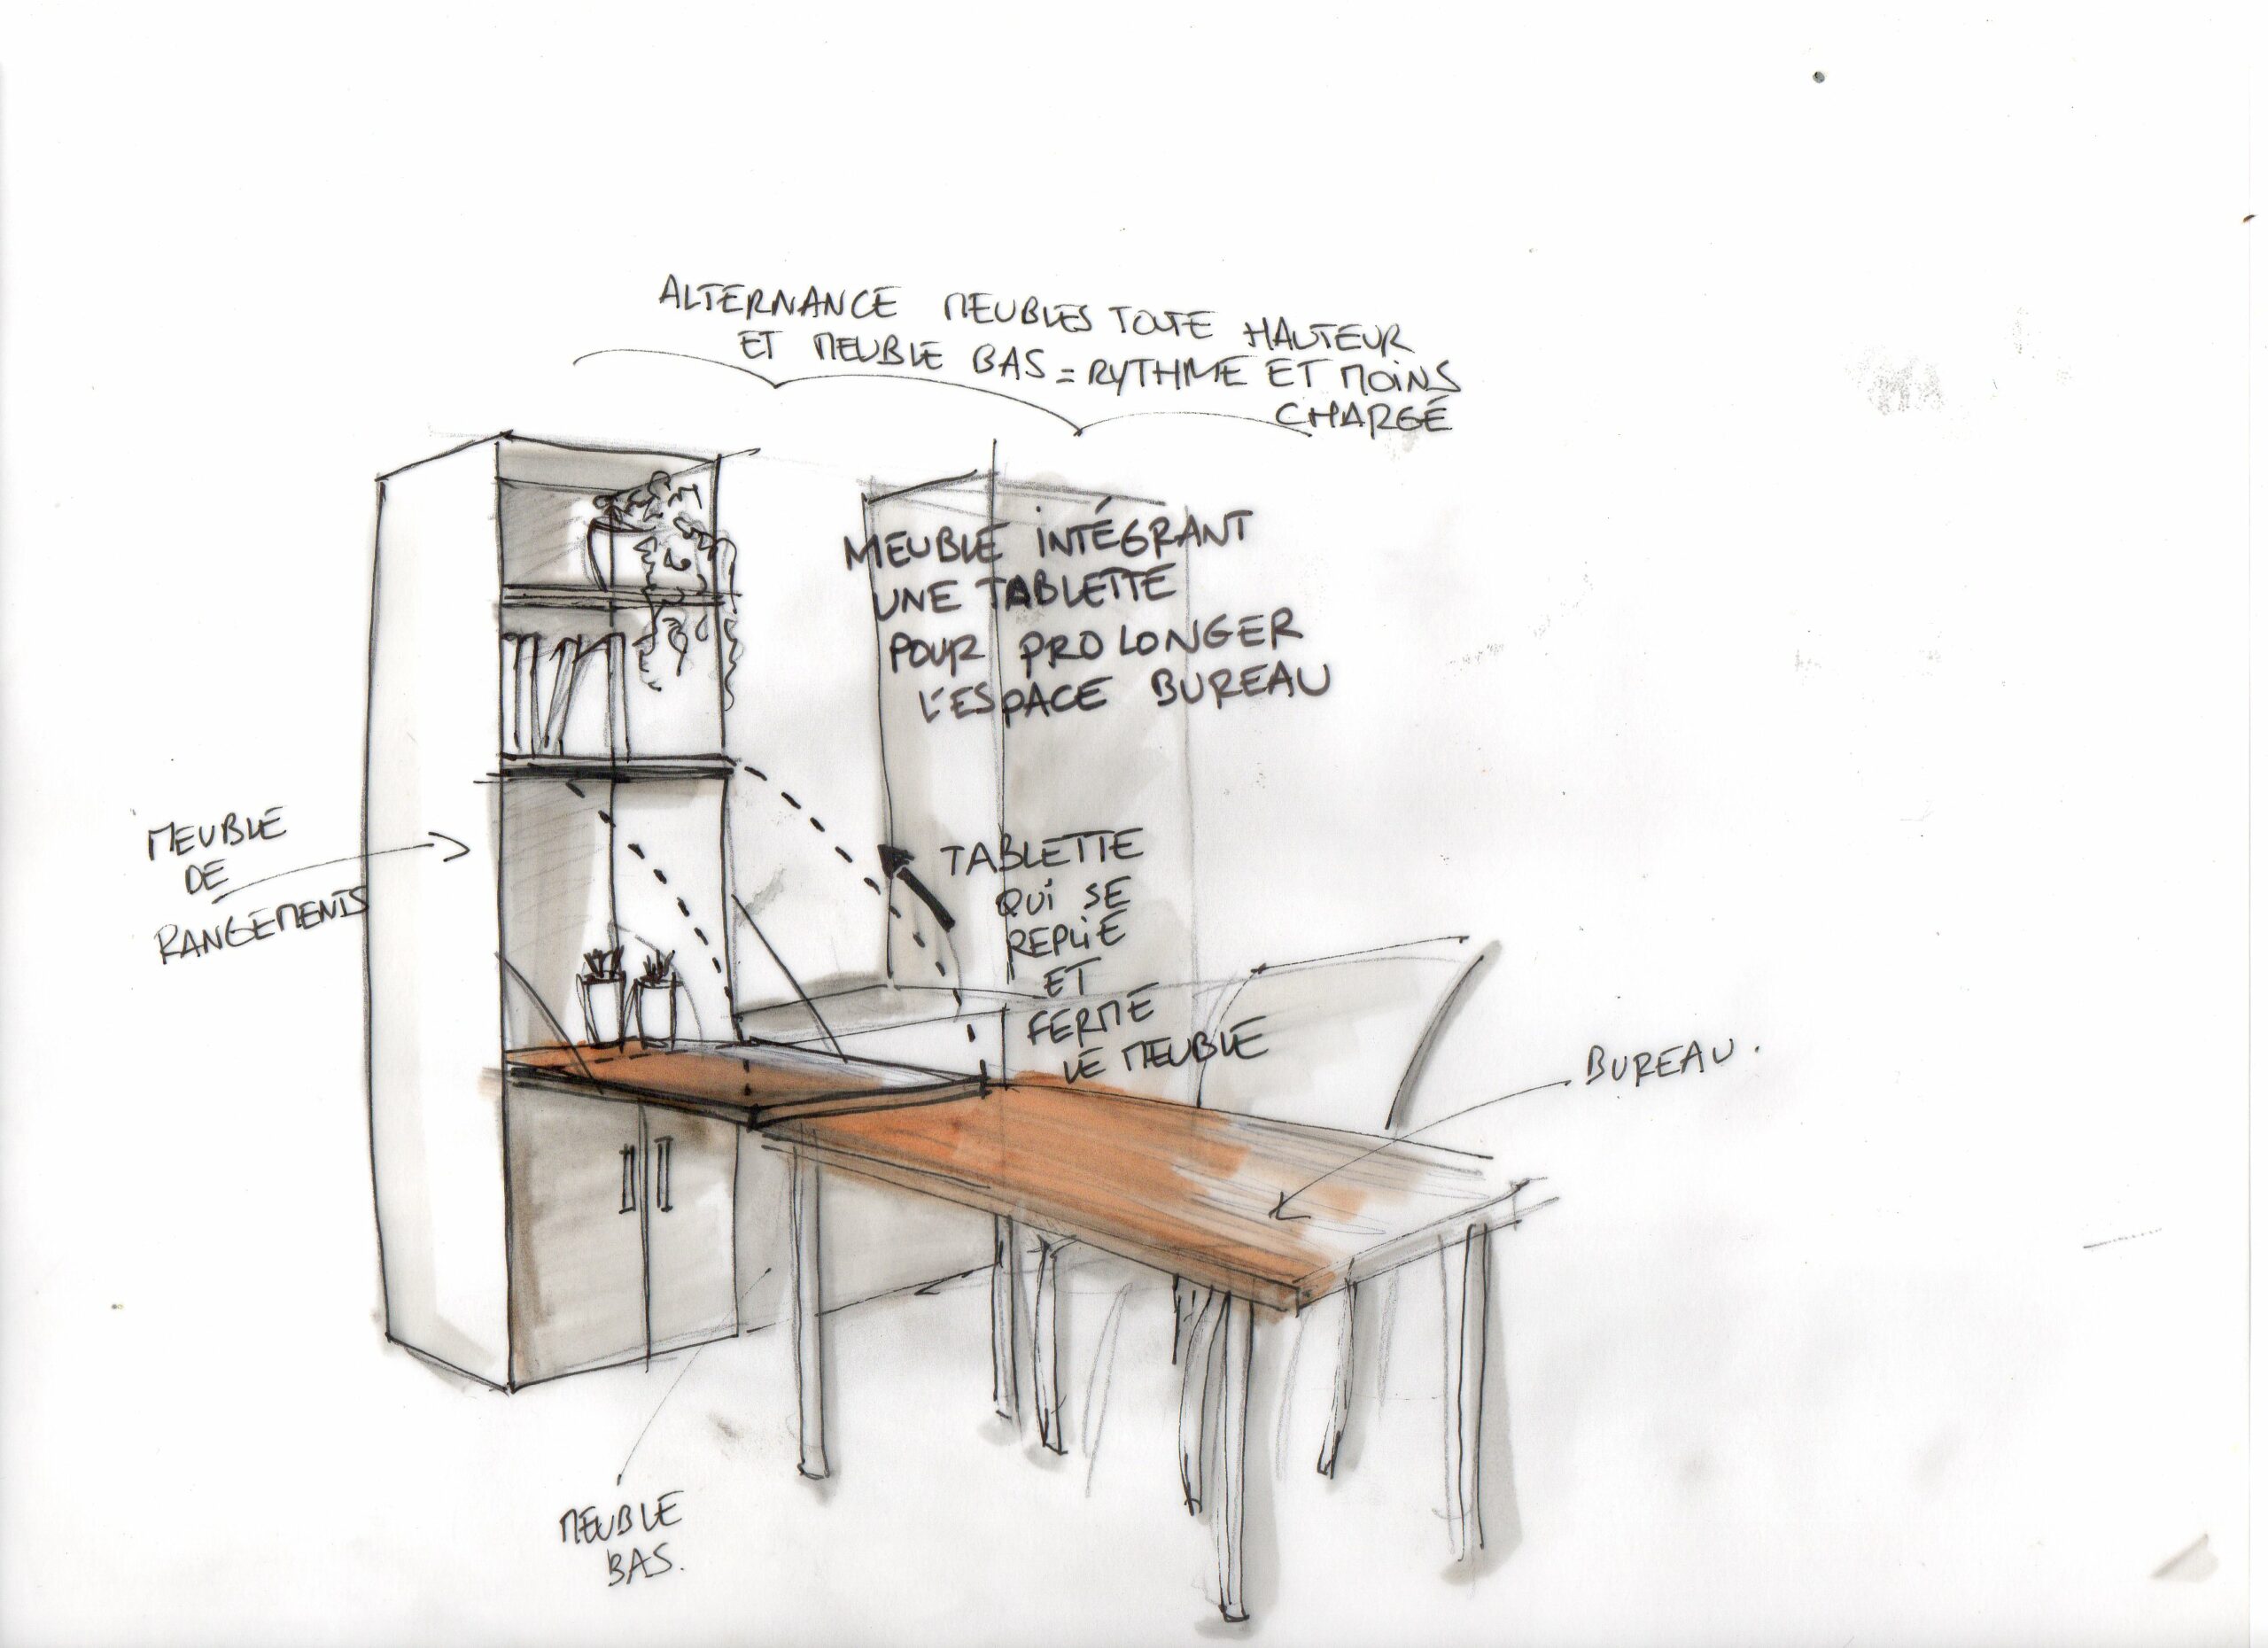 ALTERNANCE MEUBLES TOUTE HAUTEUR
ET MEUBLE BAS = RYTHME ET MOINS
CHARGÉ
MEUBLE INTÉGRANT
UNE TABLETTE
POUR PROLONGER
L'ESPACE BUREAU
MEUBLE
DE
RANGEMENTS
TABLETTE
QUI SE
REPLIE
ET
FERME
LE MEUBLE
BUREAU.
MEUBLE
BAS.